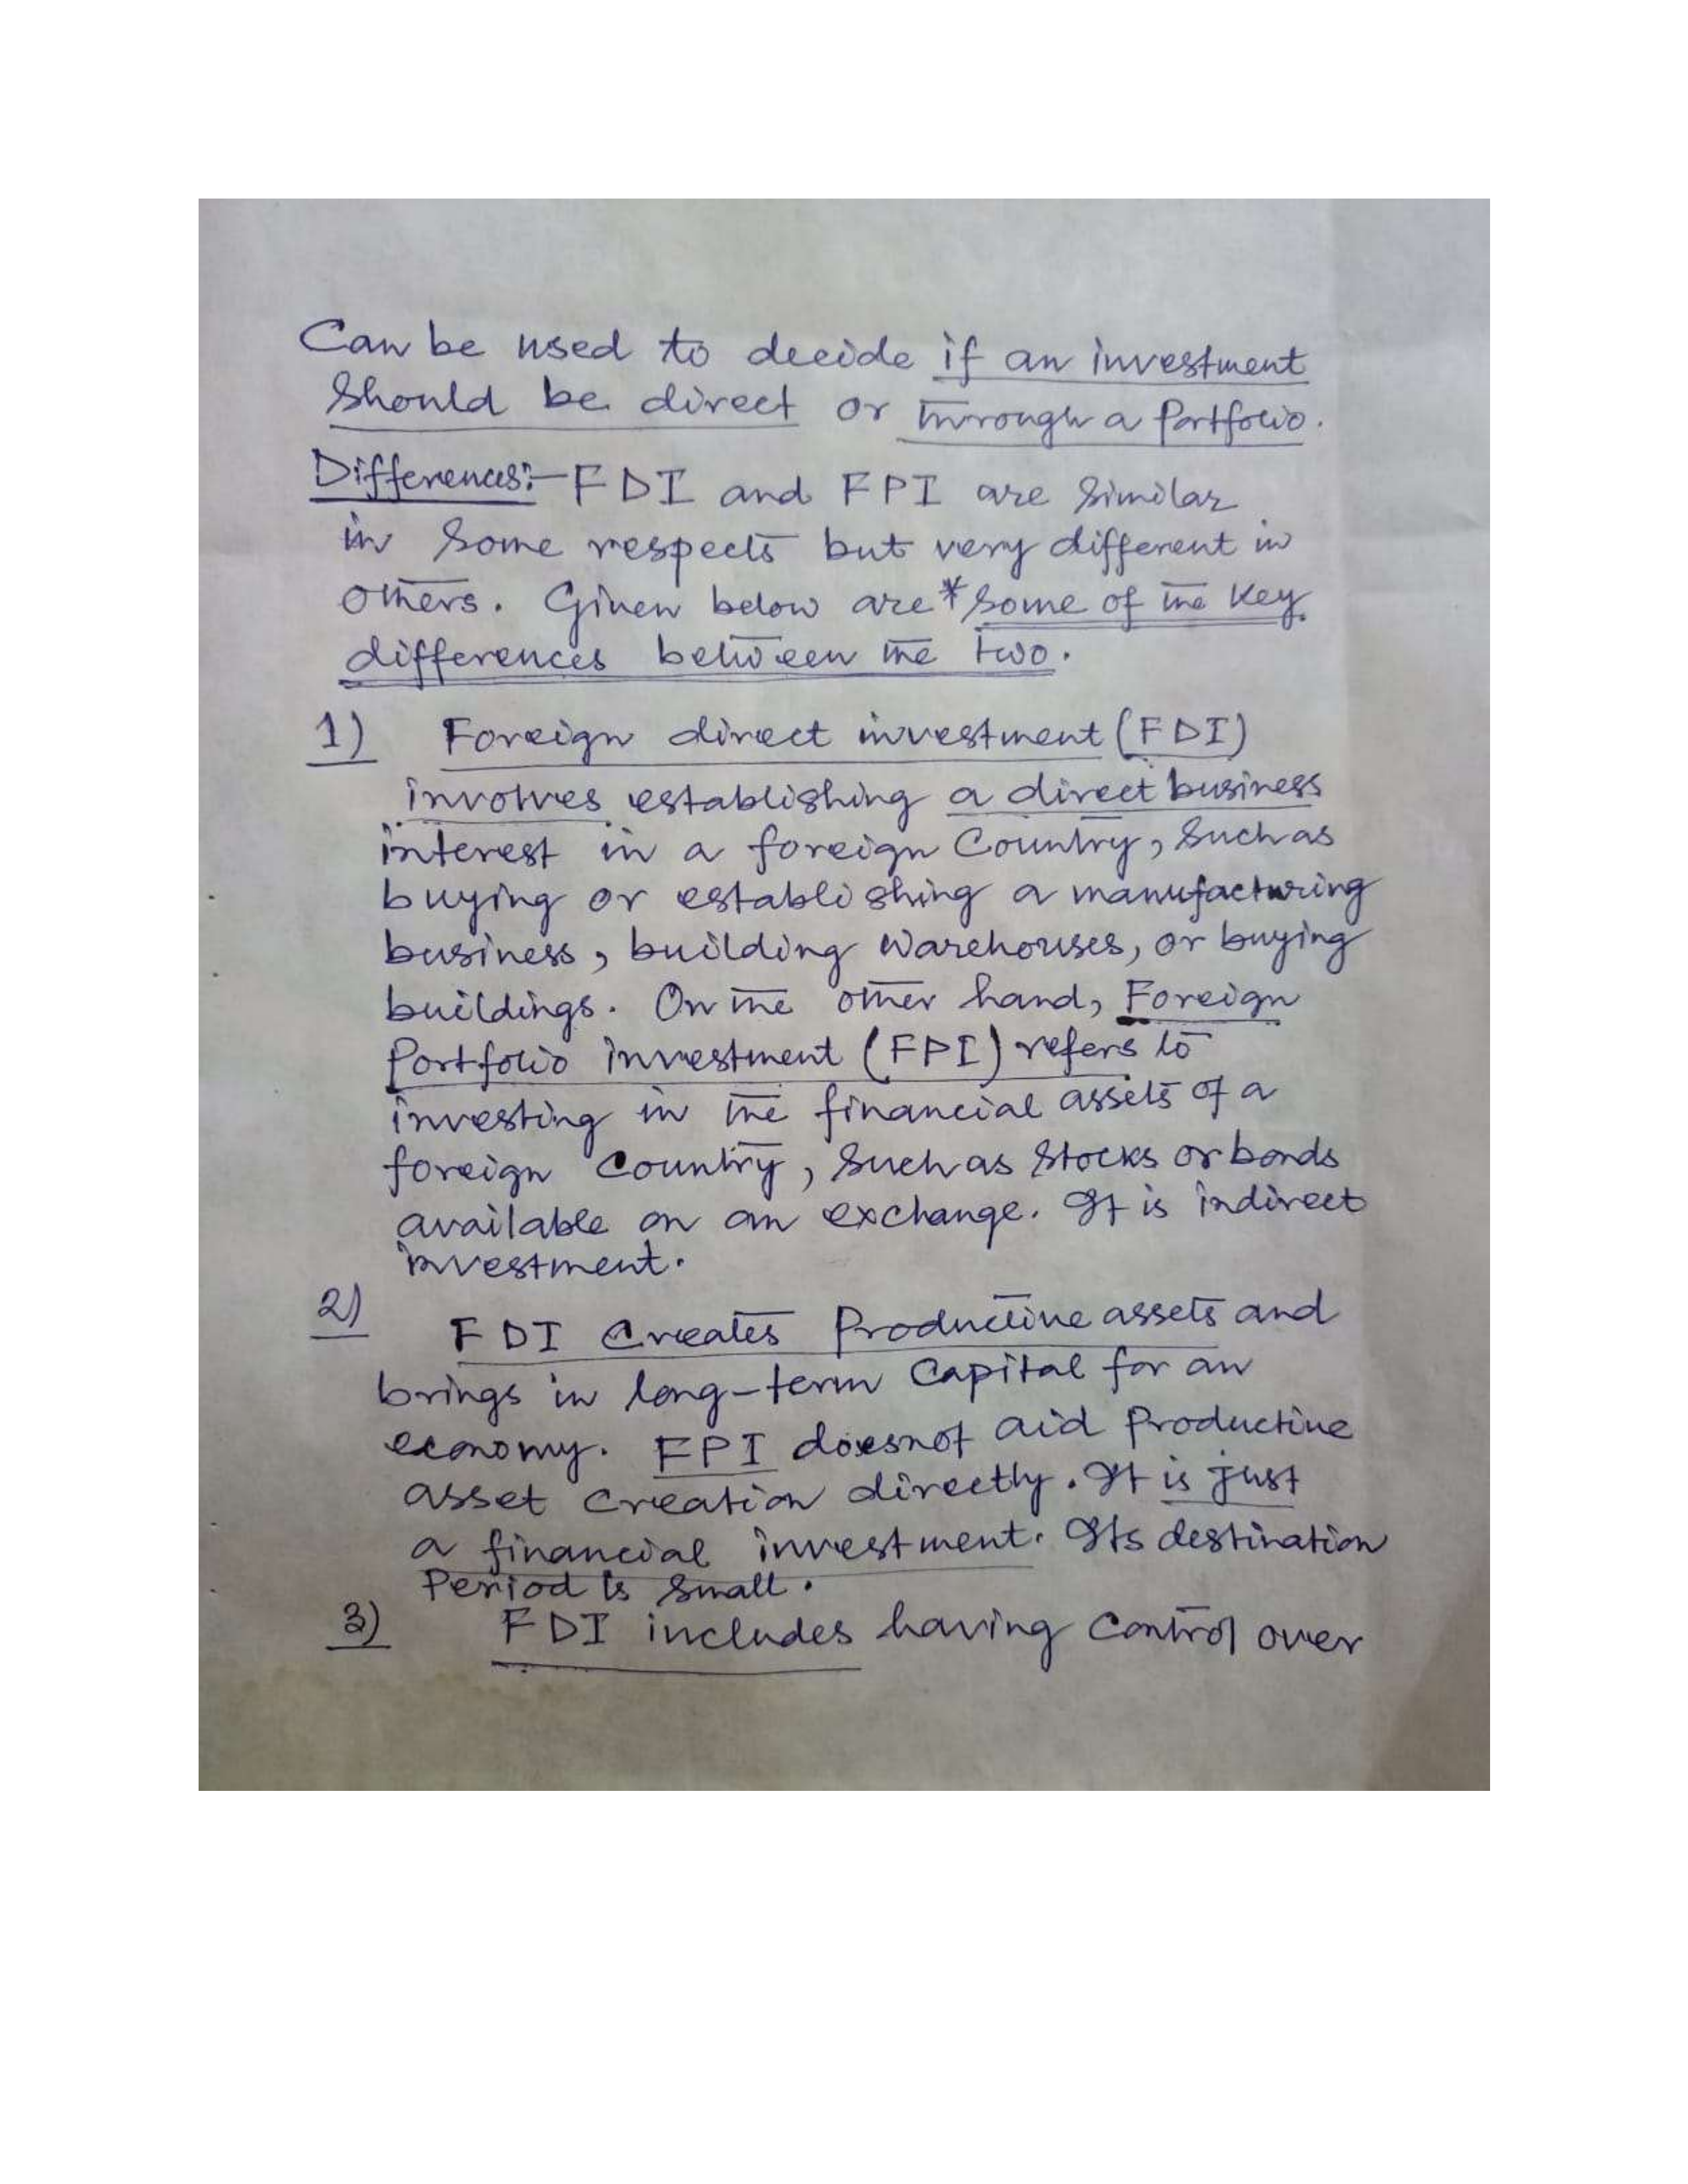 Can be used to decide if an investment
should be direct or through a Portfolio.
Differences:- FDI and FPI are Similar
in Some respects but very different in
others. Given below are *some of the key
differences between the two.
1) Foreign direct investment (FDI)
involves establishing a direct business
interest in a foreign Country, Such as
buying or establishing a manufacturing
business, building Warehouses, or buying
buildings. On the other hand, Foreign
Portfolio investment (FPI) refers to
investing in the financial assets of a
foreign Country, Such as Stocks or bonds
available on an exchange. It is indirect
investment.
2) FDI Creates Productive assets and
brings in long-term Capital for an
economy. FPI doesnot aid Productive
asset Creation directly. It is just
a financial investment. Its destination
Period is Small.
3) FDI includes having Control over